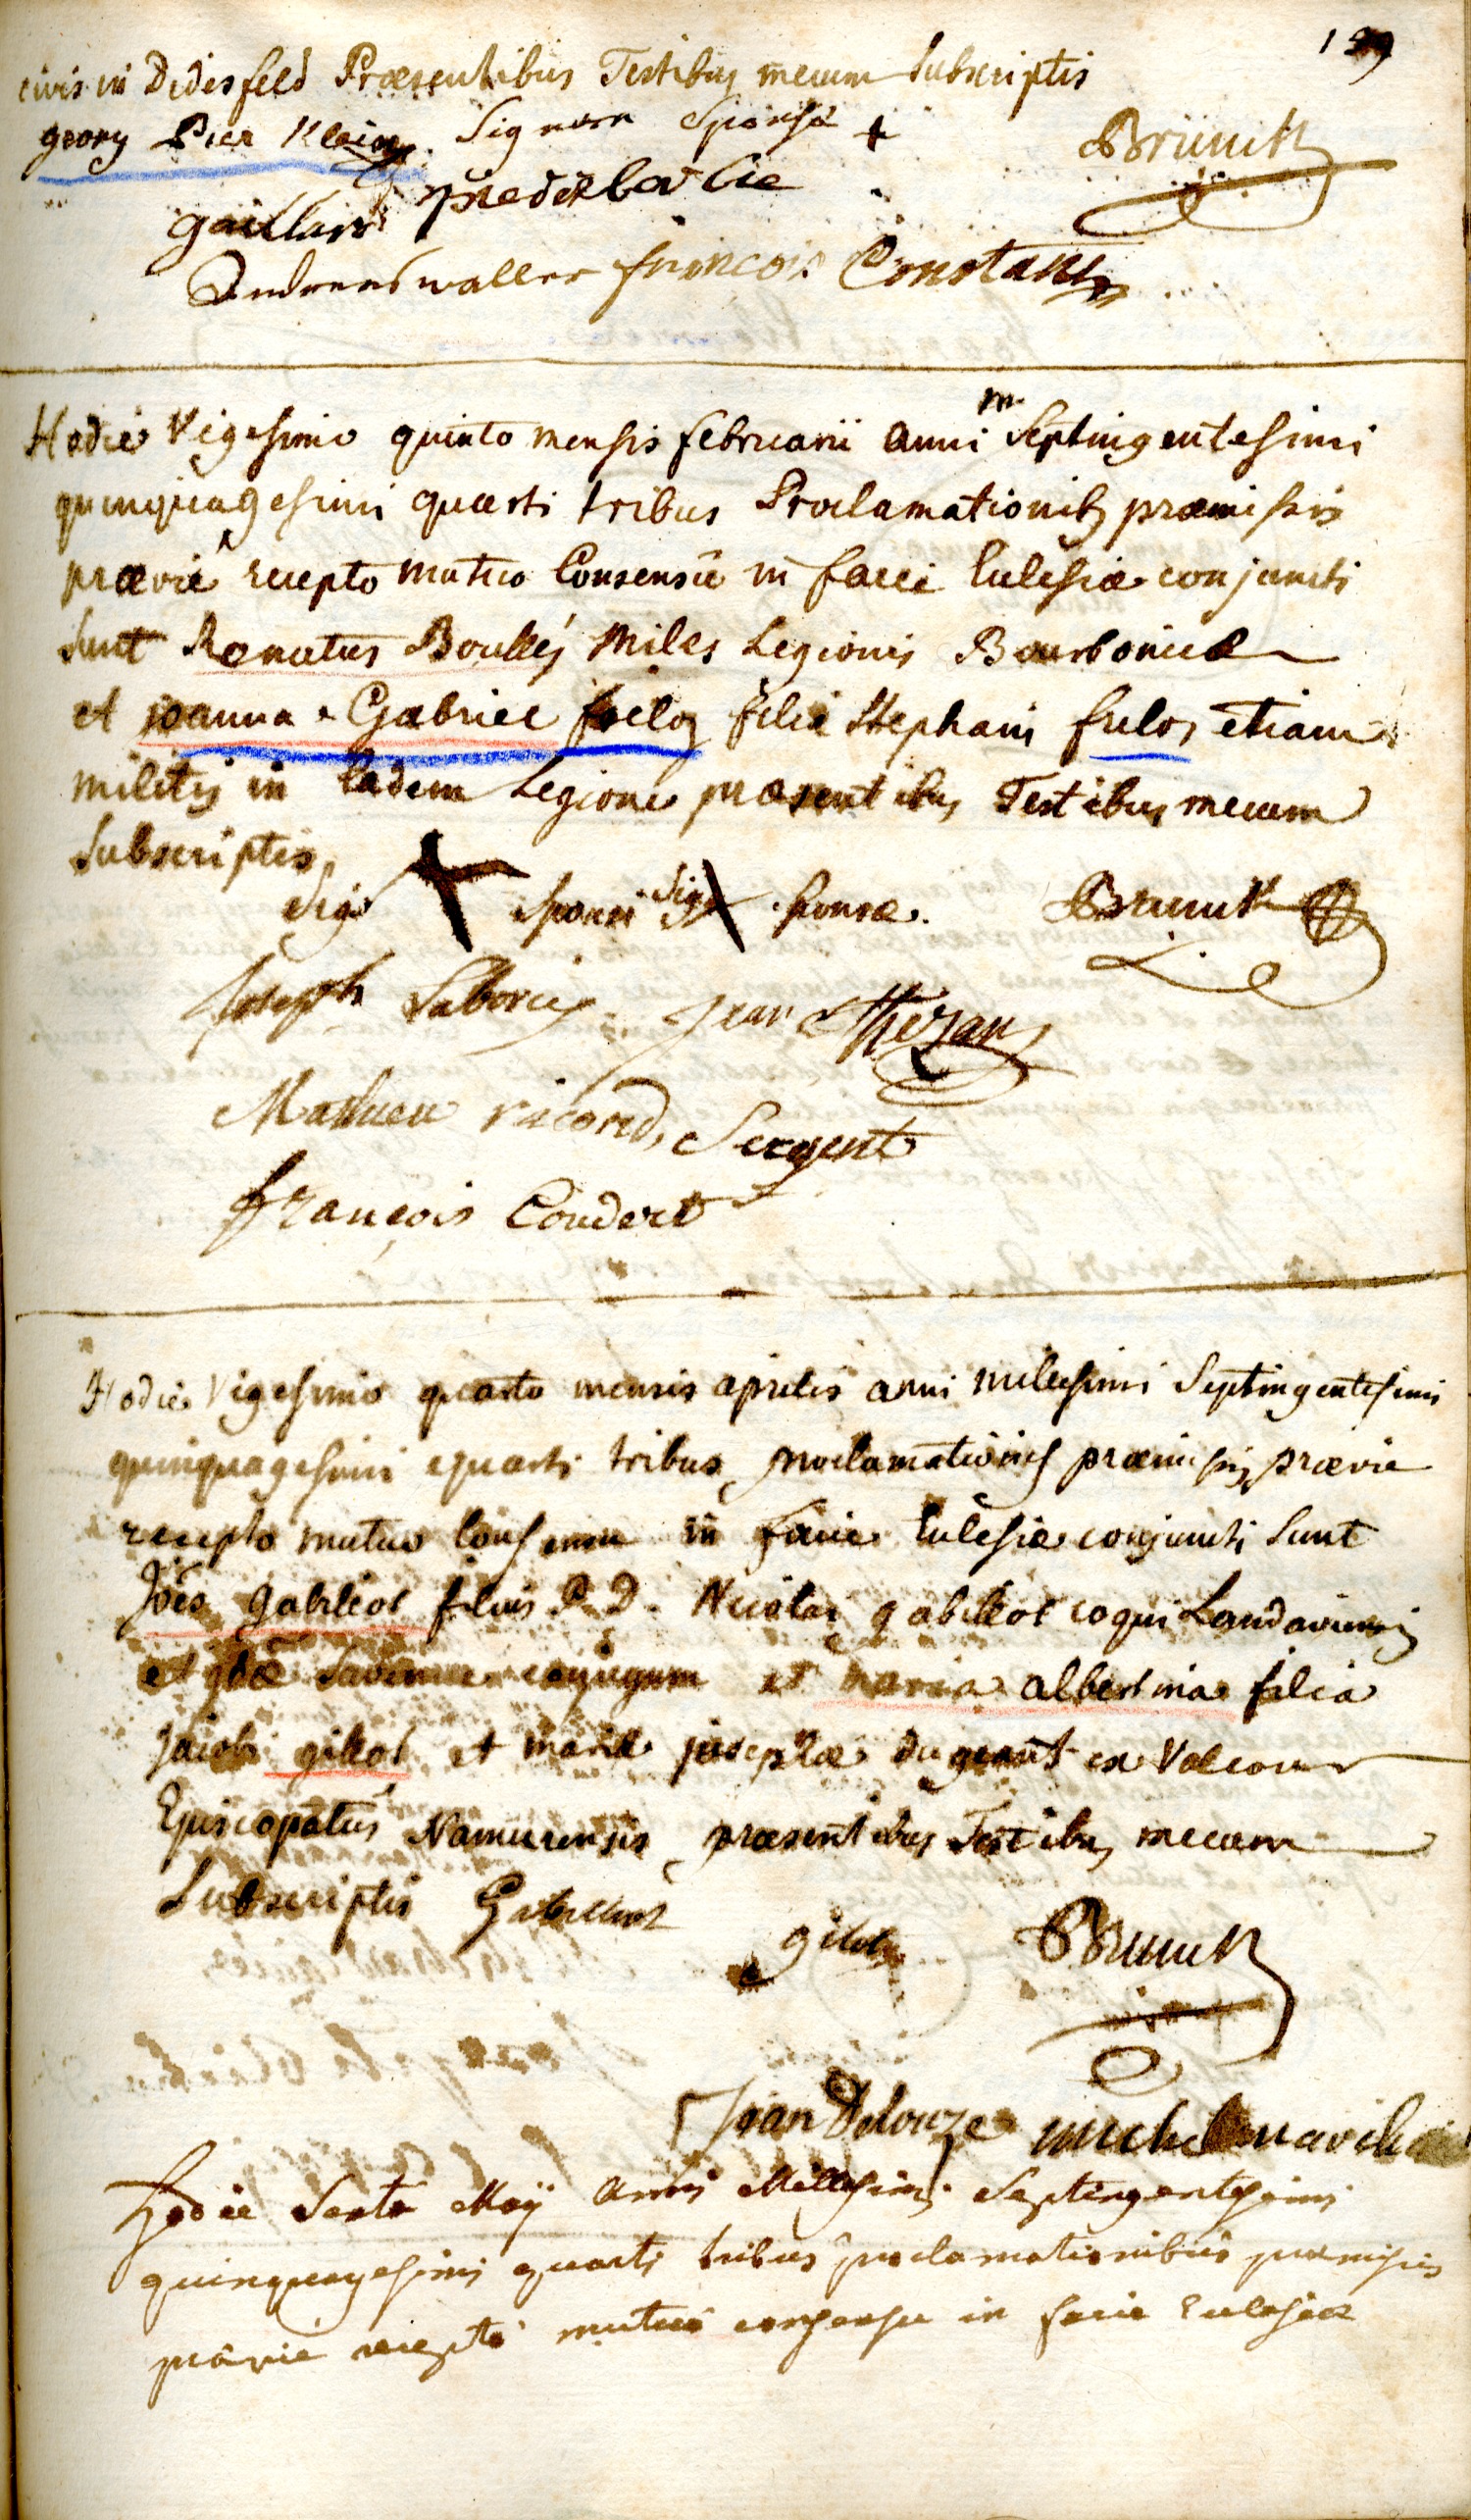 civis in Didesfeld Præsentibus Testibus mecum Subscriptis
georg Pier Klein Signum Sponsæ + Brunck
gaillard
Andreas waller francois Constans
m
Hodie Vigesimo quinto mensis februarii anni Septingentesimi
quinquagesimi quarti tribus Proclamationib præmissis
prævie recepto mutuo Consensu in facei Eclesiæ conjuncti
Sunt Renatus Boulley Miles Legionis Bourbonicæ
et joanna Gabriel frelos filia Stephani frelos etiam
militis in Eadem Legione præsentibus Testibus mecum
Subscriptis
Sig Sponsi Sig Sponsæ. Brunck
Joseph Laborie Jean Thezan
Mathieu ricord, Sergent
françois Coudert
Hodie Vigesimo quarto mensis aprilis anni millesimi Septingentesimi
quinquagesimi quarti tribus proclamationib præmissis prævie
recepto mutuo Consensu in facie Eclesiæ conjuncti Sunt
Joes gabilliot filius P. D. Nicolai gabilliot coqui Landaviensis
et conjugum et maria albertina filia
Jacobi gillot et mariæ josephæ dugeant ex Valcour
Episcopatus Namurensis præsentibus Testibus mecum
Subscriptis Gabilliot
gilot Brunck
Jean Delouze michel
Hodie Sexta Maij anni Millesimi Septingentesimi
quinquagesimi quarti tribus proclamationibus præmissis
prævie recepto mutuo consensu in facie Eclesiæ